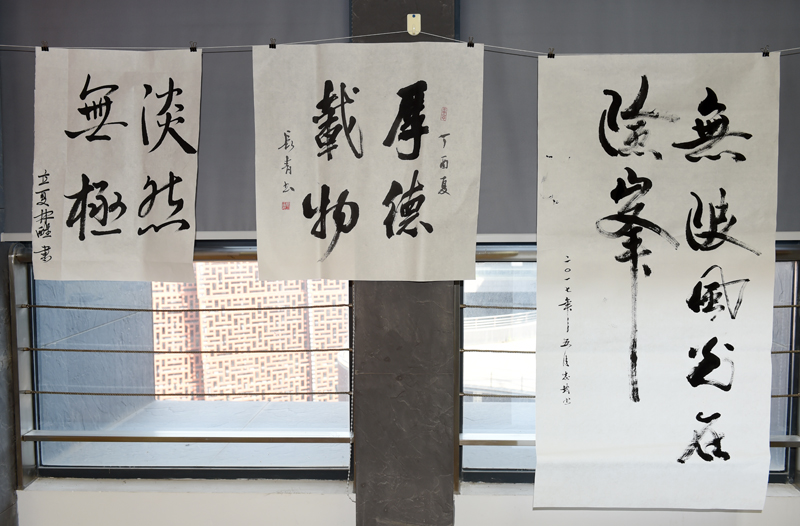 淡然
無極
立夏
書
丁酉夏
厚德
載物
長青书
無限風光在
險峯
二〇一七年于五月